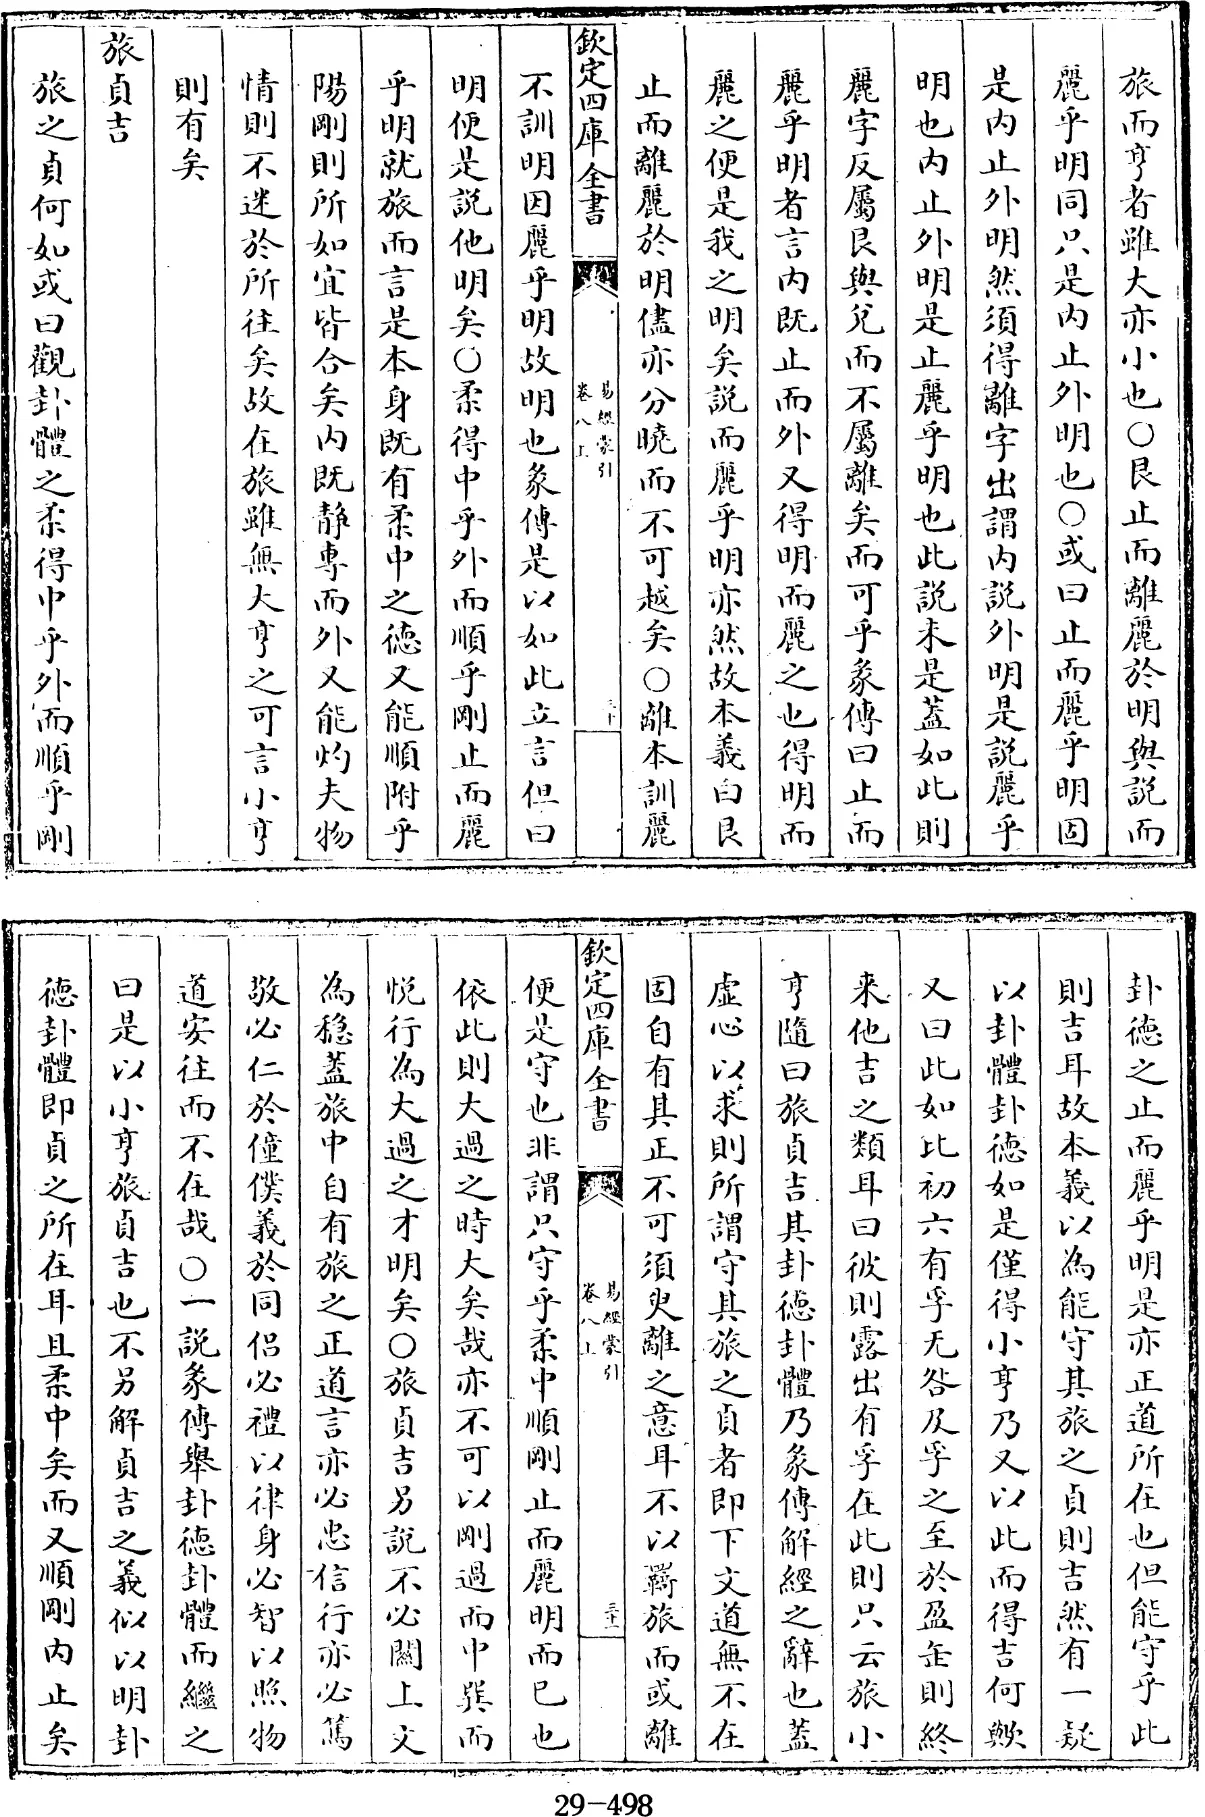 旅而亨者雖大亦小也〇艮止而離麗於明與説而
麗乎明同只是内止外明也〇或曰止而麗乎明固
是内止外明然須得離字出謂内説外明是説麗乎
明也内止外明是止麗乎明也此説未是蓋如此則
麗字反屬艮與兌而不屬離矣而可乎彖傳曰止而
麗乎明者言内既止而外又得明而麗之也得明而
麗之便是我之明矣説而麗乎明亦然故本義白艮
止而離麗於明儘亦分曉而不可越矣〇離本訓麗
欽定四庫全書
易經蒙引
卷八上
三十
不訓明因麗乎明故明也彖傳是以如此立言但曰
明便是説他明矣〇柔得中乎外而順乎剛止而麗
乎明就旅而言是本身既有柔中之德又能順附乎
陽剛則所如宜皆合矣内既靜專而外又能灼夫物
情則不迷於所往矣故在旅雖無大亨之可言小亨
則有矣
旅貞吉
旅之貞何如或曰觀卦體之柔得中乎外而順乎剛
卦德之止而麗乎明是亦正道所在也但能守乎此
則吉耳故本義以為能守其旅之貞則吉然有一疑
以卦體卦德如是僅得小亨乃又以此而得吉何歟
又曰此如比初六有孚无咎及孚之至於盈缶則終
來他吉之類耳曰彼則露出有孚在此則只云旅小
亨隨曰旅貞吉其卦德卦體乃彖傳解經之辭也蓋
虛心以求則所謂守其旅之貞者即下文道無不在
固自有其正不可須臾離之意耳不以羇旅而或離
欽定四庫全書
易經蒙引
卷八上
三十一
便是守也非謂只守乎柔中順剛止而麗明而已也
依此則大過之時大矣哉亦不可以剛過而中巽而
悦行為大過之才明矣〇旅貞吉另説不必關上文
為穩蓋旅中自有旅之正道言亦必忠信行亦必篤
敬必仁於僮僕義於同侶必禮以律身必智以照物
道安往而不在哉〇一説彖傳舉卦德卦體而繼之
曰是以小亨旅貞吉也不另解貞吉之義似以明卦
德卦體即貞之所在耳且柔中矣而又順剛内止矣
29-498